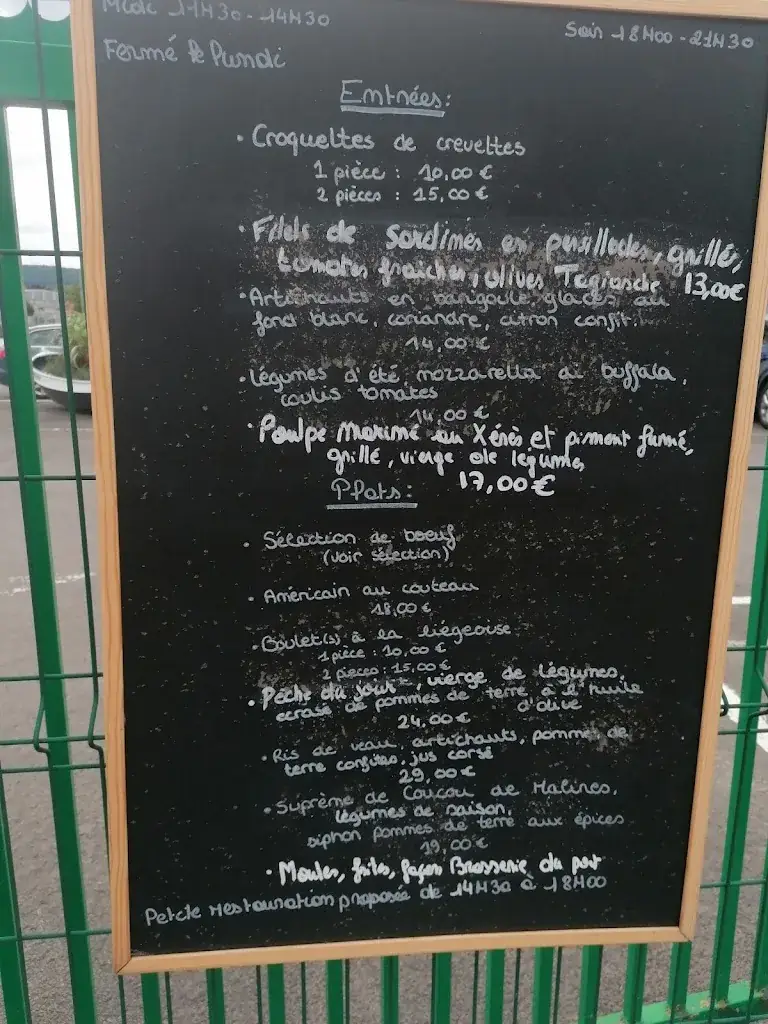 Midi 11H30 - 14H30
Soir 18H00 - 21H30
Fermé le Lundi
Entrées:
• Croquettes de crevettes
1 pièce : 10,00 €
2 pièces : 15,00 €
• Filets de sardines en persillades, grillé,
tomates fraiches, olives Tagiasche 13,00€
• Artichauts en barigoule, glacés au
fond blanc, coriandre, citron confit.
14,00 €
• Légumes d'été, mozzarella di buffala,
coulis tomates
14,00 €
• Poulpe mariné au Xérès et piment fumé,
grillé, vierge de légumes
17,00€
Plats:
• Sélection de boeuf
(voir sélection)
• Américain au couteau
18,00 €
• Boulet(s) à la liégeoise
1 pièce : 10,00 €
2 pièces : 15,00 €
• Pêche du jour, vierge de légumes,
écrasé de pommes de terre à l'huile
d'olive
24,00 €
• Ris de veau, artichauts, pommes de
terre confites, jus corsé
29,00 €
• Suprème de Coucou de Malines,
légumes de saison,
siphon pommes de terre aux épices
19,00 €
• Moules, frites, façon Brasserie du port
Petite restauration proposée de 14H30 à 18H00